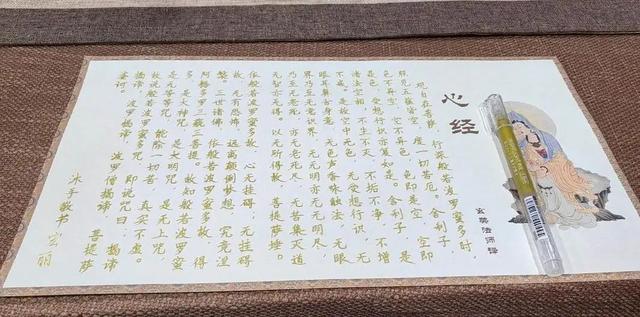 心经
玄奘法师译
观自在菩萨，行深般若波罗蜜多时，
照见五蕴皆空，度一切苦厄。舍利子，
色不异空，空不异色，色即是空，空即
是色，受想行识亦复如是。舍利子，是
诸法空相，不生不灭，不垢不净，不增
不减。是故空中无色，无受想行识，无
眼耳鼻舌身意，无色声香味触法，无眼
界乃至无意识界，无无明亦无无明尽，
乃至无老死，亦无老死尽，无苦集灭道
无智亦无得，以无所得故，菩提萨埵。
依般若波罗蜜多故，心无挂碍；无挂碍
故，无有恐怖，远离颠倒梦想，究竟涅
槃。三世诸佛，依般若波罗蜜多故，得
阿耨多罗三藐三菩提。故知般若波罗蜜
多，是大神咒，是大明咒，是无上咒
是无等等咒，能除一切苦，真实不虚。
故说般若波罗蜜多咒，即说咒曰：揭谛
揭谛，波罗揭谛，波罗僧揭谛，菩提萨
婆诃。
沐手敬书 宏丽